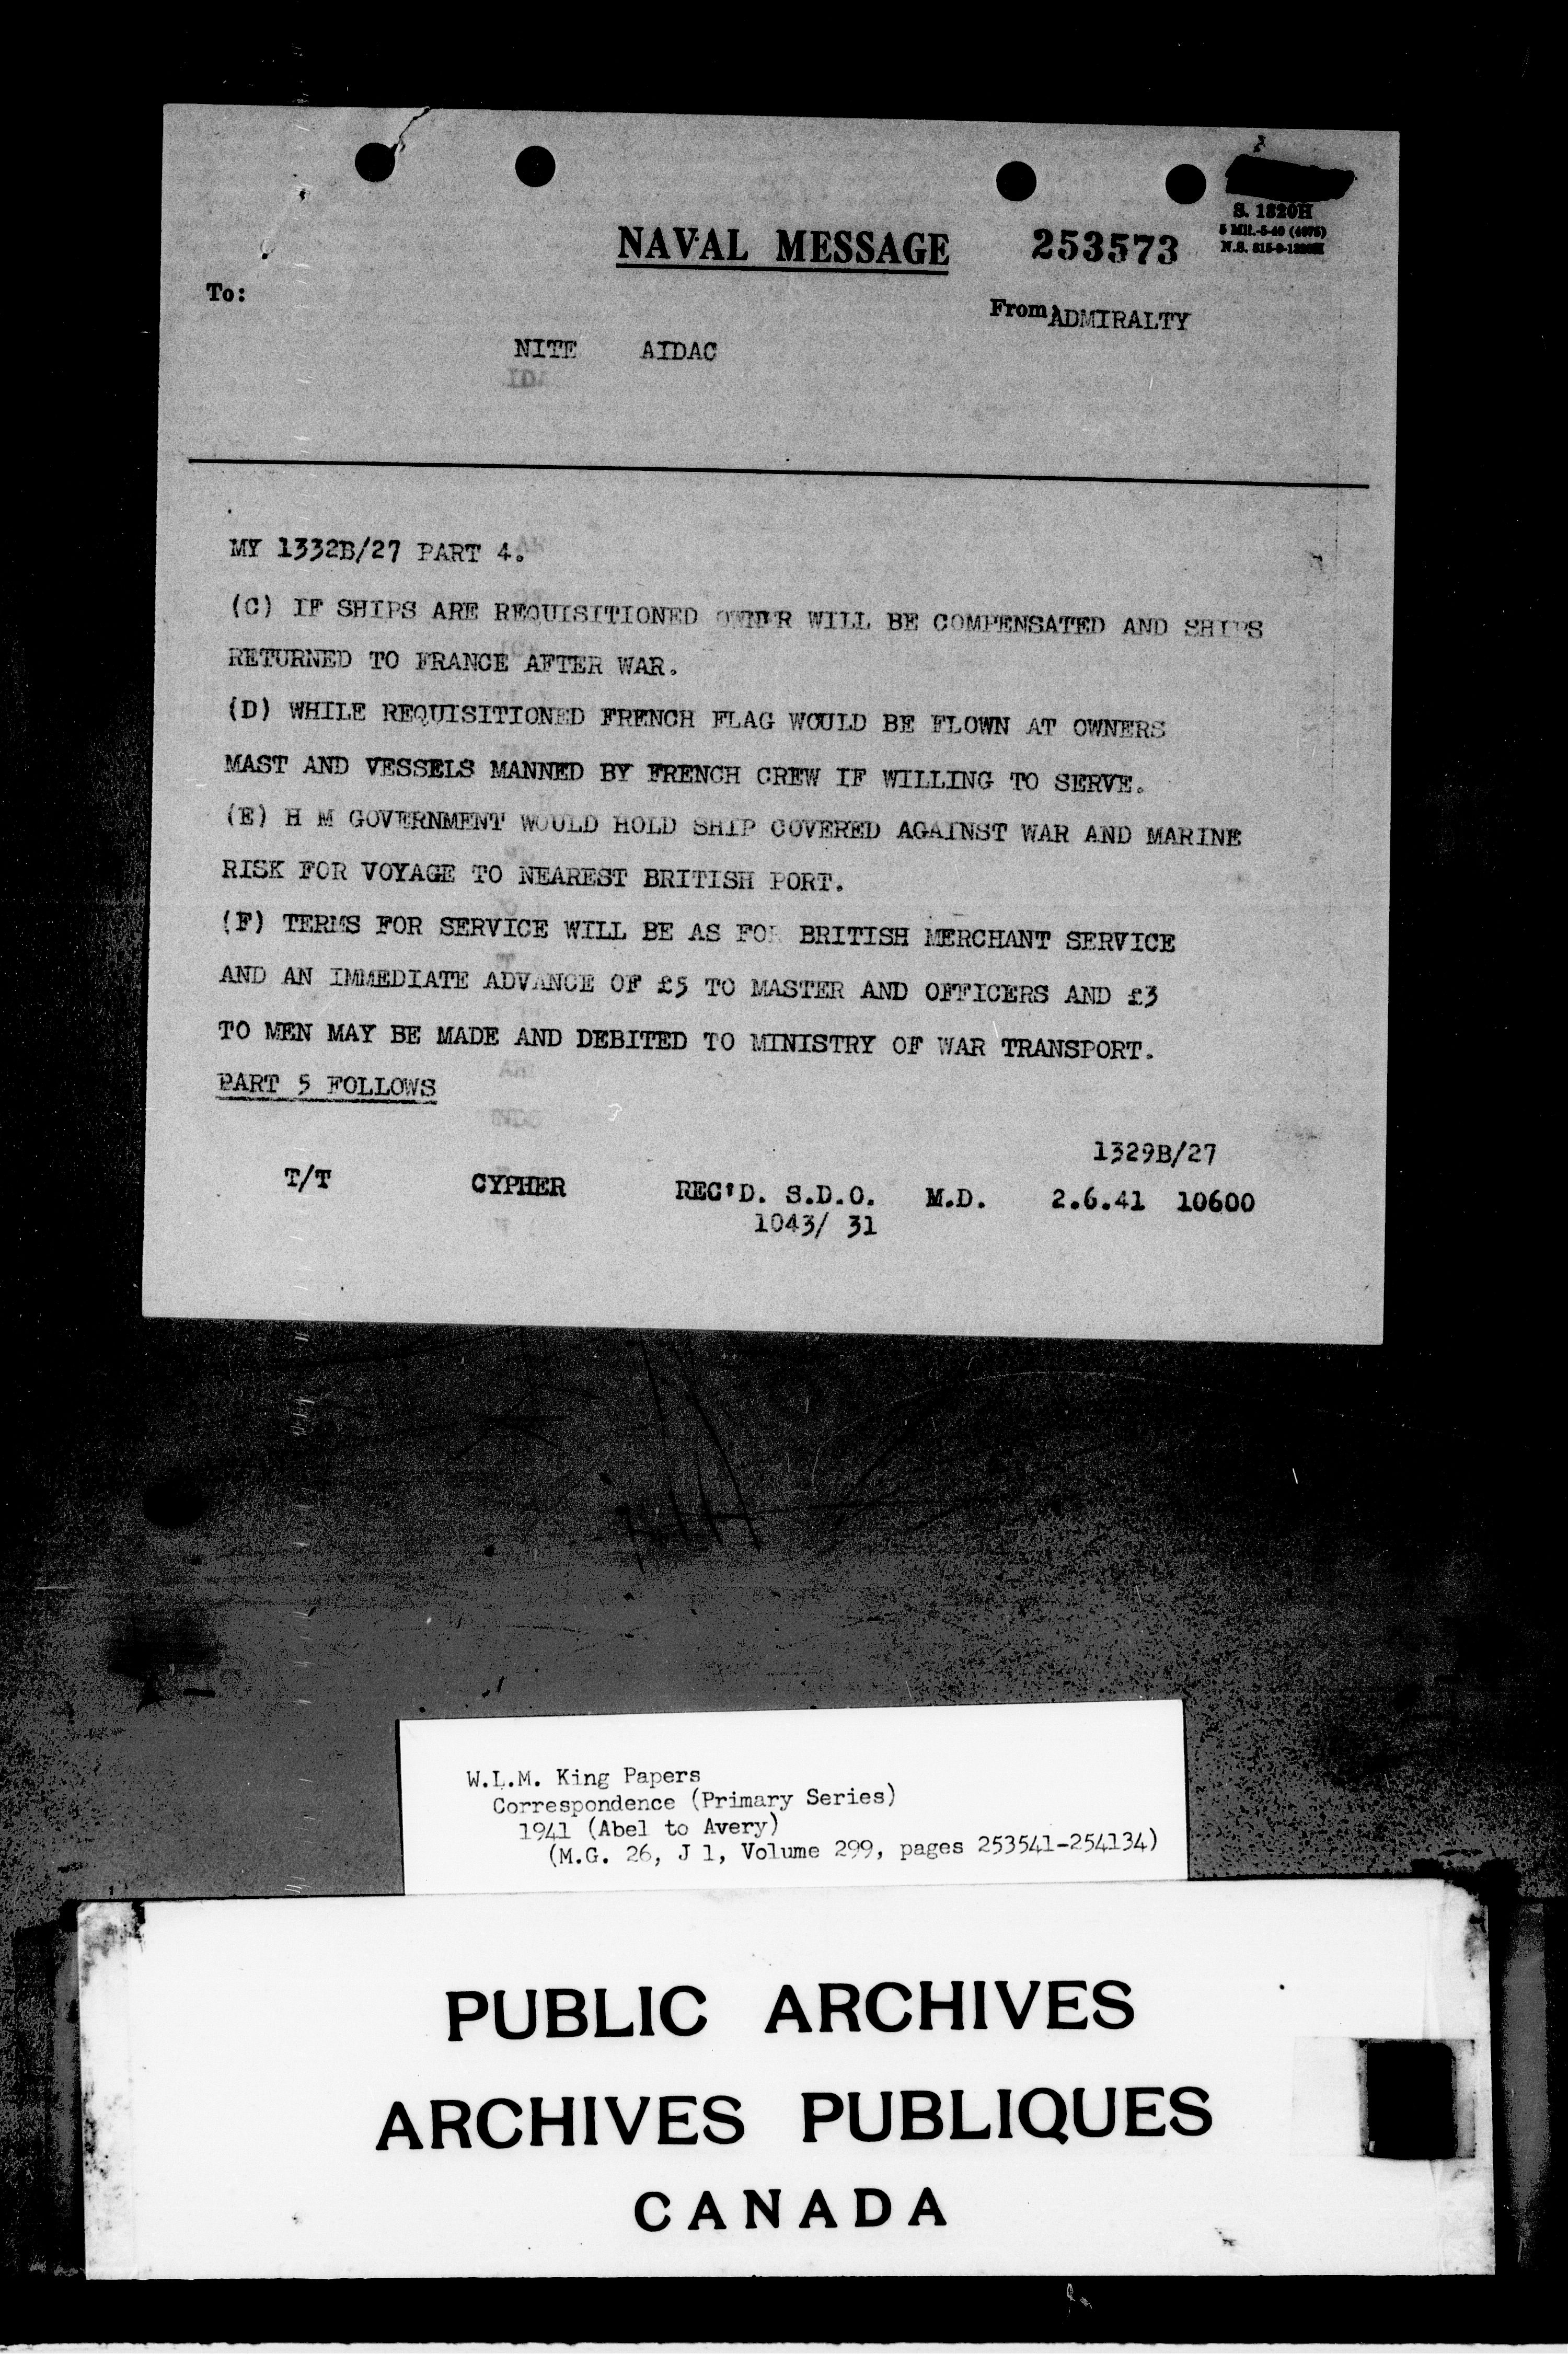 S. 1820H
5 Mil.-5-40 (4675)
NAVAL MESSAGE 253573
To:
From ADMIRALTY
NITE AIDAC
MY 1332B/27 PART 4.
(C) IF SHIPS ARE REQUISITIONED OWNER WILL BE COMPENSATED AND SHIPS
RETURNED TO FRANCE AFTER WAR.
(D) WHILE REQUISITIONED FRENCH FLAG WOULD BE FLOWN AT OWNERS
MAST AND VESSELS MANNED BY FRENCH CREW IF WILLING TO SERVE.
(E) H M GOVERNMENT WOULD HOLD SHIP COVERED AGAINST WAR AND MARINE
RISK FOR VOYAGE TO NEAREST BRITISH PORT.
(F) TERMS FOR SERVICE WILL BE AS FOR BRITISH MERCHANT SERVICE
AND AN IMMEDIATE ADVANCE OF £5 TO MASTER AND OFFICERS AND £3
TO MEN MAY BE MADE AND DEBITED TO MINISTRY OF WAR TRANSPORT.
PART 5 FOLLOWS
1329B/27
T/T CYPHER REC'D. S.D.O. M.D. 2.6.41 10600
1043/ 31
W.L.M. King Papers
Correspondence (Primary Series)
1941 (Abel to Avery)
(M.G. 26, J 1, Volume 299, pages 253541-254134)
PUBLIC ARCHIVES
ARCHIVES PUBLIQUES
CANADA